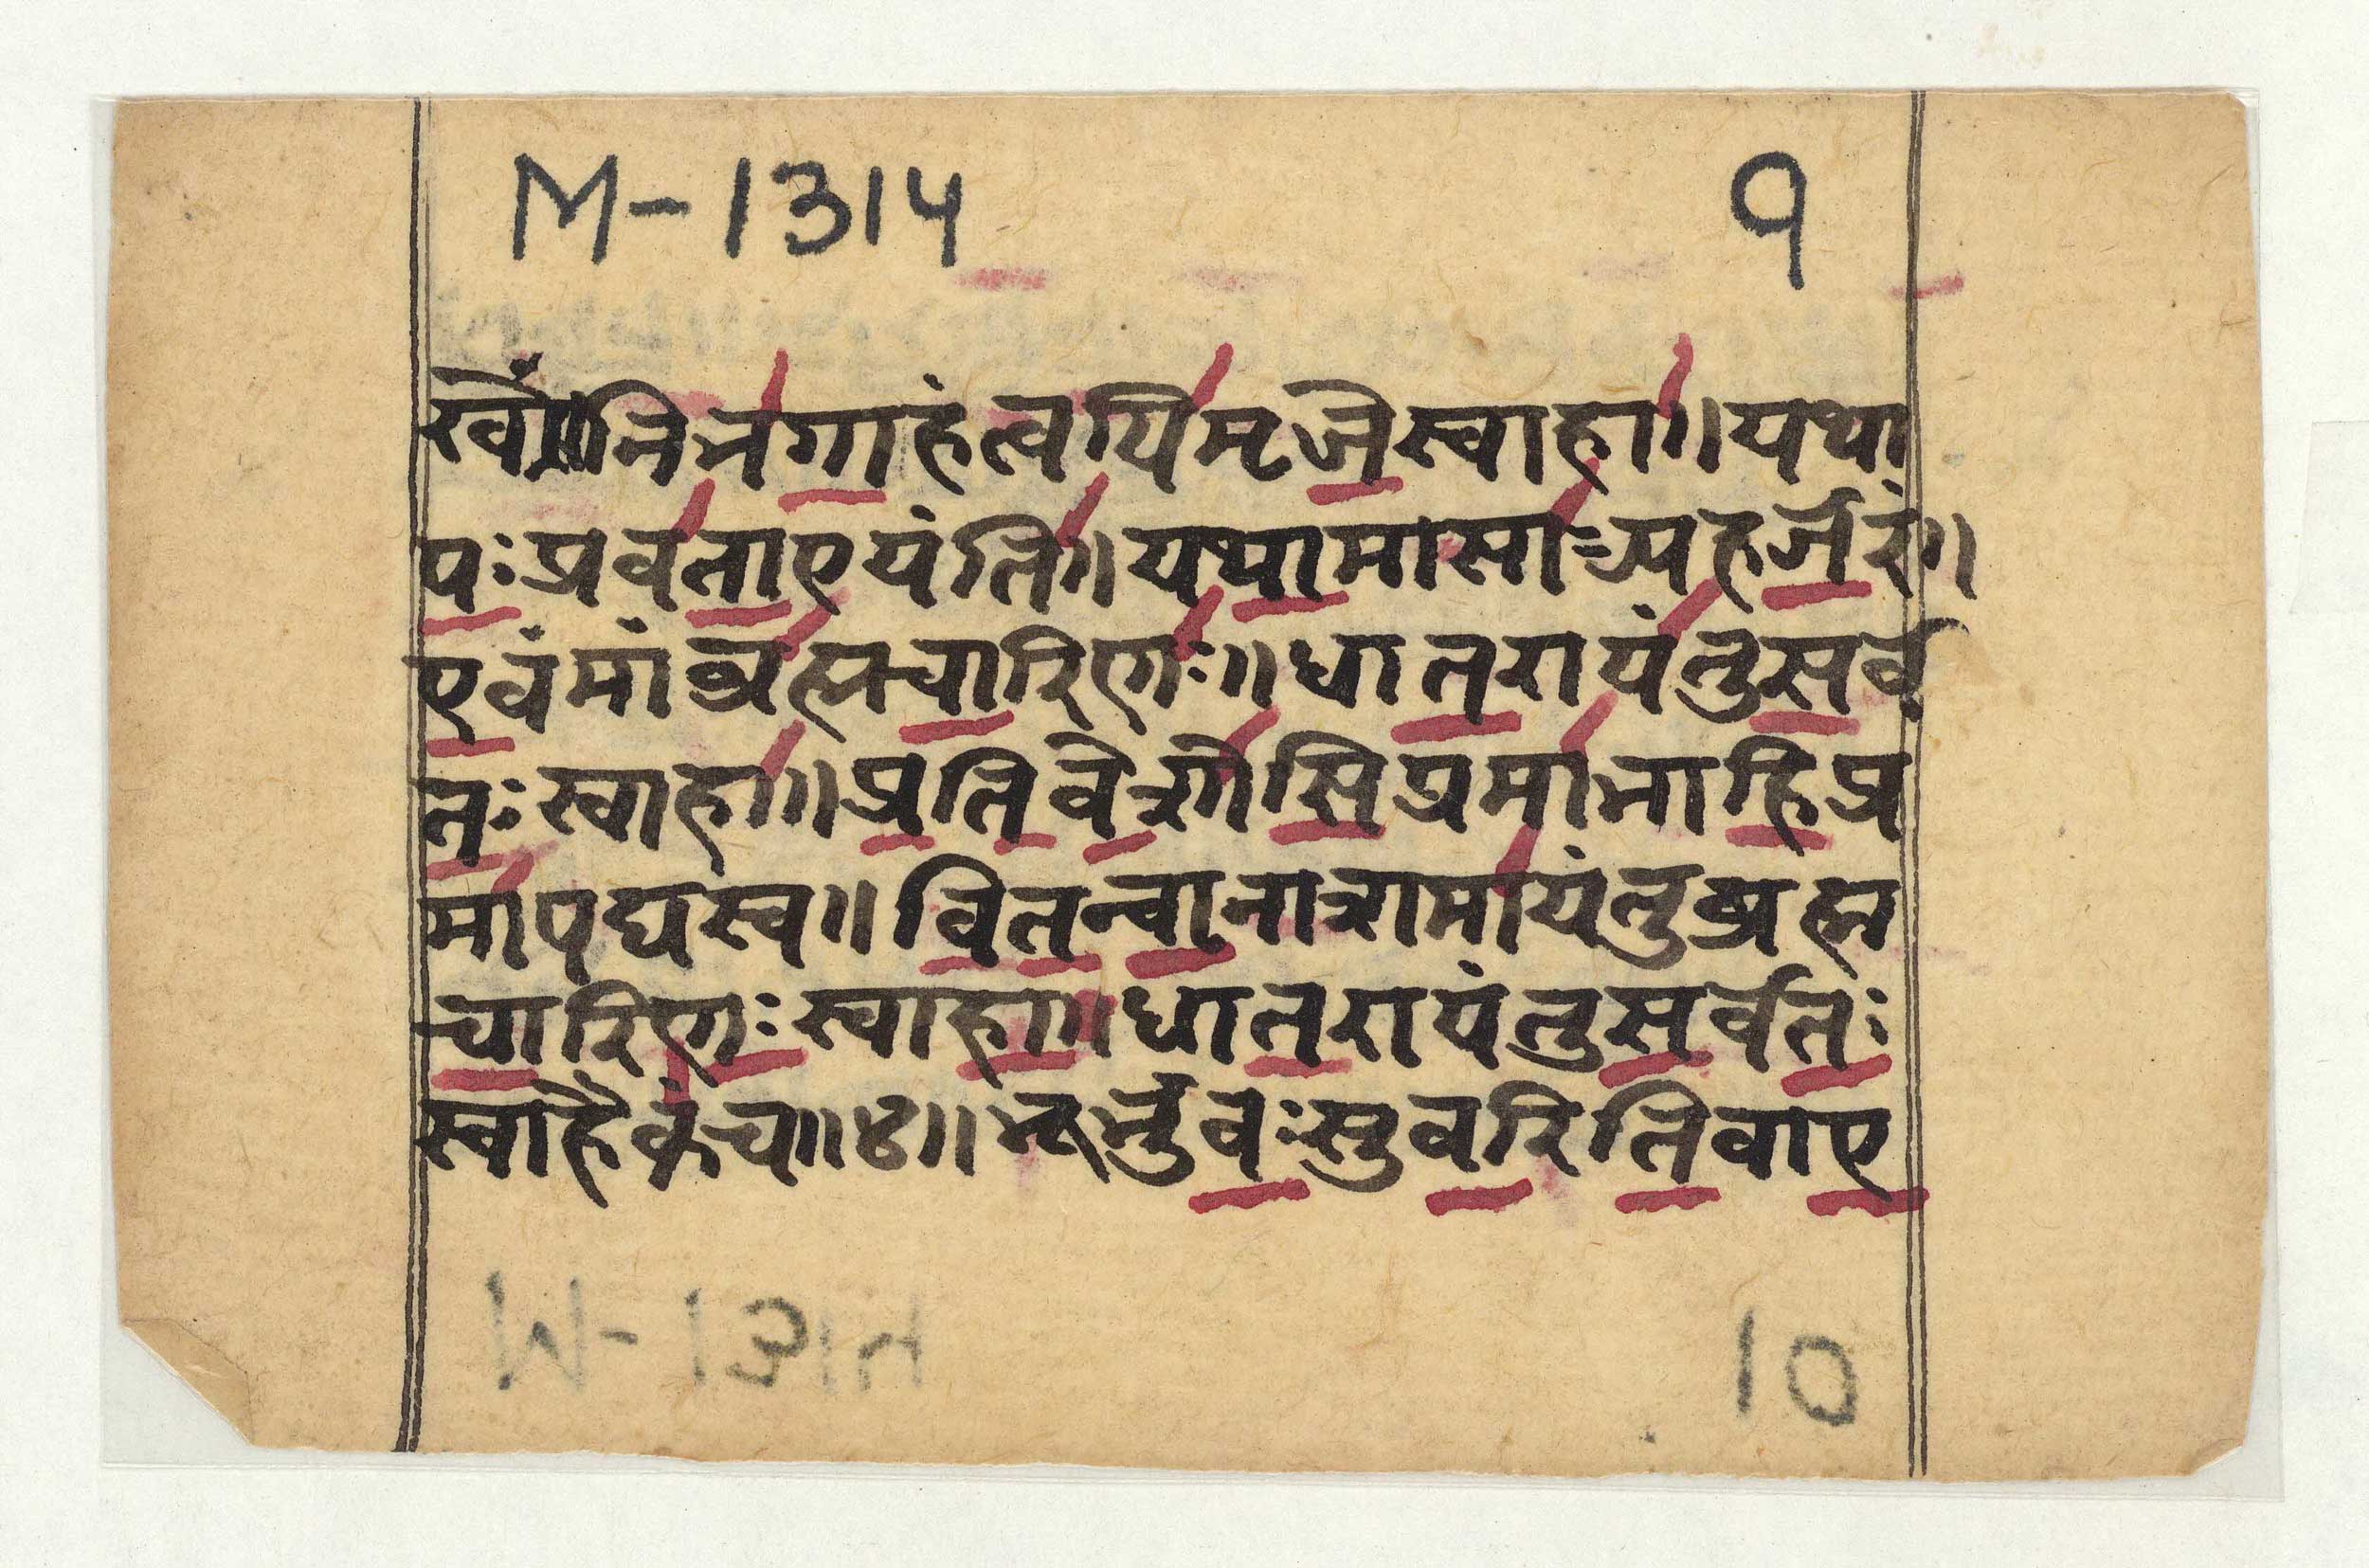 M-1314 9
खे॥निभगाहंत्वयिमृजेस्वाहा॥यथा
पःप्रवतायंति॥यथामासाअहर्जरं॥
एवंमांब्रह्मचारिणः॥धातरायंतुसर्व
तःस्वाहा॥प्रतिवेशोसिप्रमाभाहिप्र
मापद्यस्व॥वितन्वानात्रामायंतुब्रह्म
चारिणःस्वाहा॥धातरायंतुसर्वतः
स्वाहैकंच॥४॥भूर्भुवःसुवरितिवाए
10